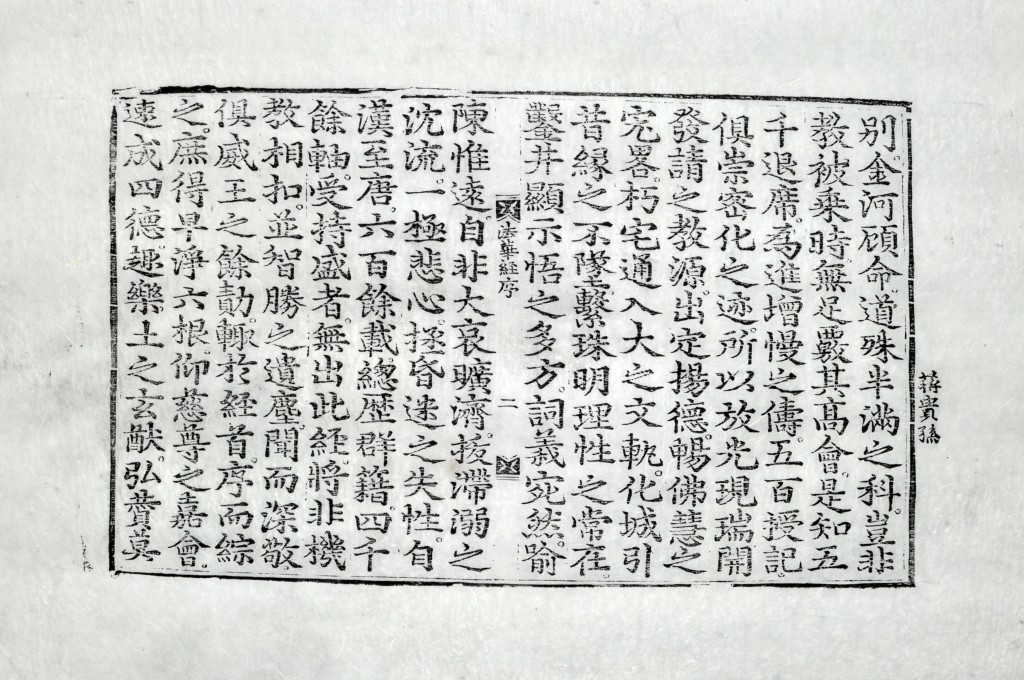 別。金河顧命。道殊半滿之科。豈非
教被乗時。無足覈其高會。是知五
千退席。為進增慢之儔。五百授記。
俱崇密化之迹。所以放光現瑞開
發請之教源。出定揚德。暢佛慧之
宏畧。朽宅通入大之文軌。化城引
昔縁之不墜。繫珠明理性之常在。
鑿井顯示悟之多方。詞義宛然。喻
法華経序
二
陳惟遠。自非大哀曠濟。拔滯溺之
沈流。一極悲心。拯昏迷之失性。自
漢至唐。六百餘載。總歷群籍。四千
餘軸。受持盛者。無出此経。將非機
教相扣。並智勝之遺塵。聞而深敬
俱威王之餘勣。輙於経首。序而綜
之。庶得早淨六根。仰慈尊之嘉會。
速成四德。趣樂土之玄猷。弘賛莫